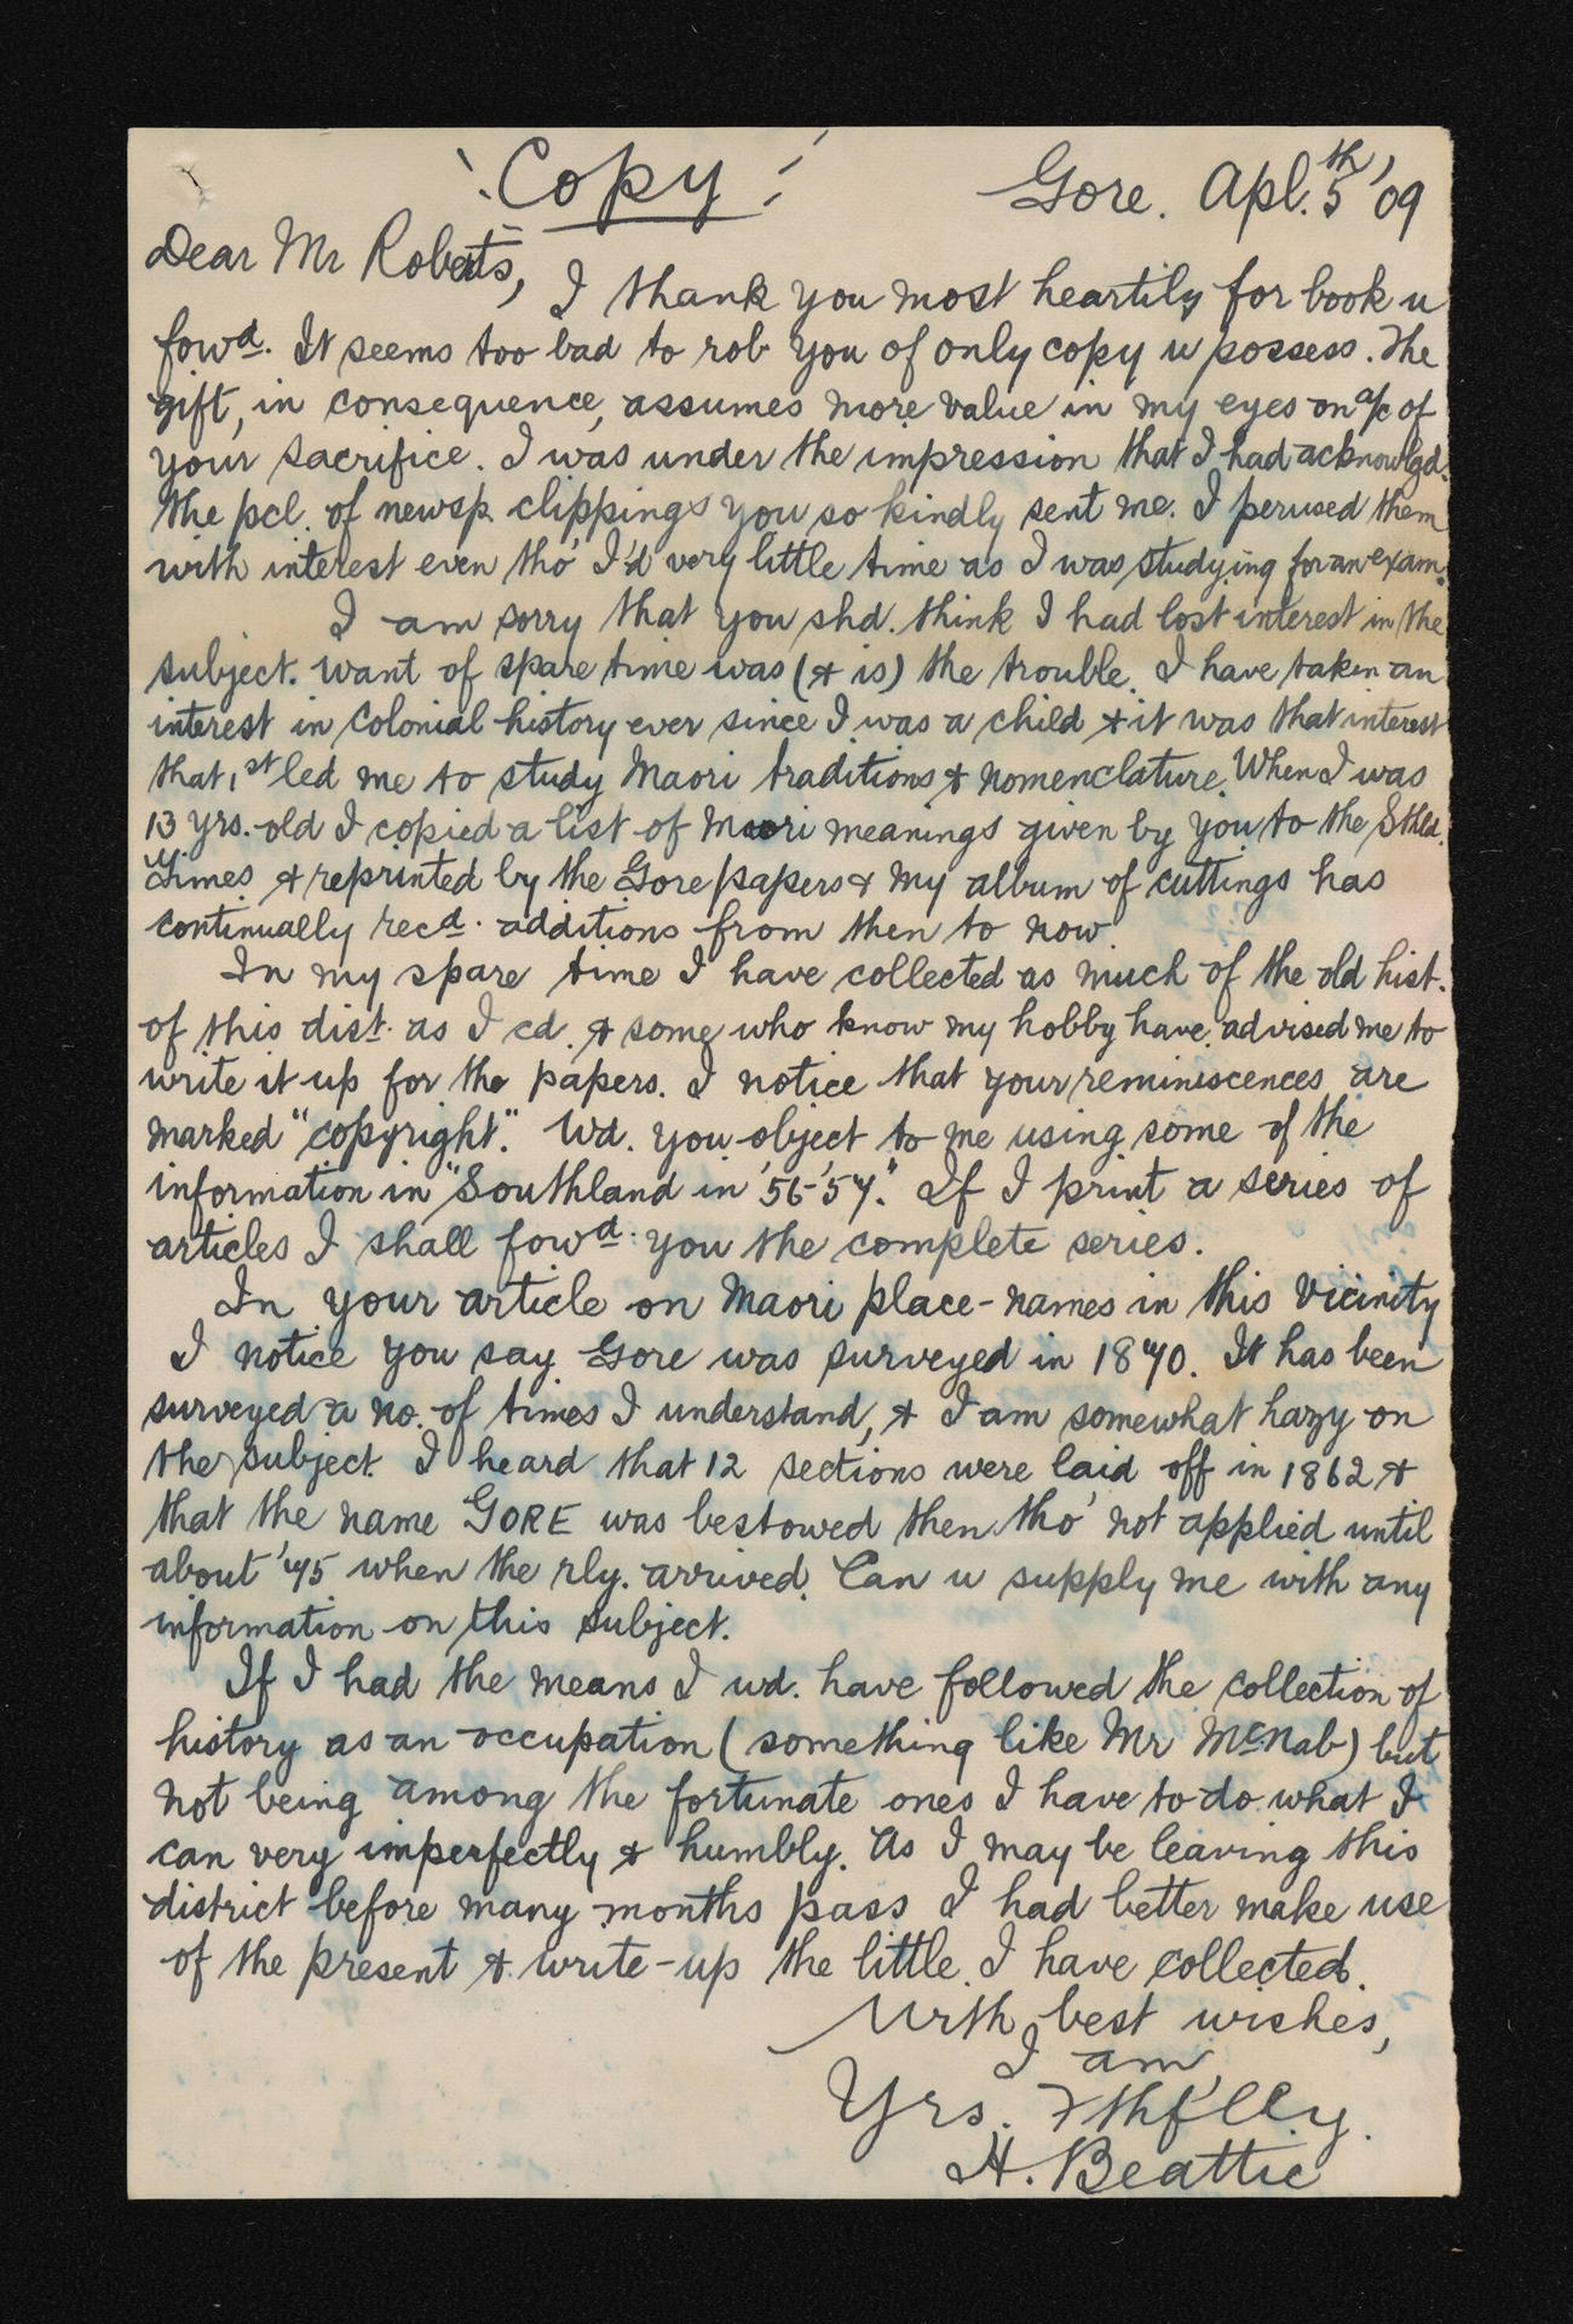 "Copy"
Gore. Apl. 5th, '09
Dear Mr Roberts,
I thank you most heartily for book u
fowd. It seems too bad to rob you of only copy u possess. The
gift, in consequence, assumes more value in my eyes on a/c of
your sacrifice. I was under the impression that I had acknowlgd.
the pcl. of newsp. clippings you so kindly sent me. I perused them
with interest even tho' I'd very little time as I was studying for an exam.
I am sorry that you shd. think I had lost interest in the
subject. Want of spare time was (& is) the trouble. I have taken an
interest in Colonial history ever since I was a child & it was that interest
that 1st led me to study Maori traditions & nomenclature. When I was
13 yrs. old I copied a list of Maori meanings given by you to the Sthld.
Times & reprinted by the Gore papers & my album of cuttings has
continually recd. additions from then to now.
In my spare time I have collected as much of the old hist.
of this dist. as I cd. & some who know my hobby have advised me to
write it up for the papers. I notice that your reminiscences are
marked "copyright". Wd. you object to me using some of the
information in "Southland in '56-'57." If I print a series of
articles I shall fowd. you the complete series.
In your article on Maori place-names in this vicinity
I notice you say Gore was surveyed in 1870. It has been
surveyed a no. of times I understand, & I am somewhat hazy on
the subject. I heard that 12 sections were laid off in 1862 &
that the name GORE was bestowed then tho' not applied until
about '75 when the rly. arrived. Can u supply me with any
information on this subject.
If I had the means I wd. have followed the collection of
history as an occupation (something like Mr McNab) but
not being among the fortunate ones I have to do what I
can very imperfectly & humbly. As I may be leaving this
district before many months pass I had better make use
of the present & write-up the little I have collected.
With best wishes,
I am,
Yrs. Fthf'lly.
H. Beattie